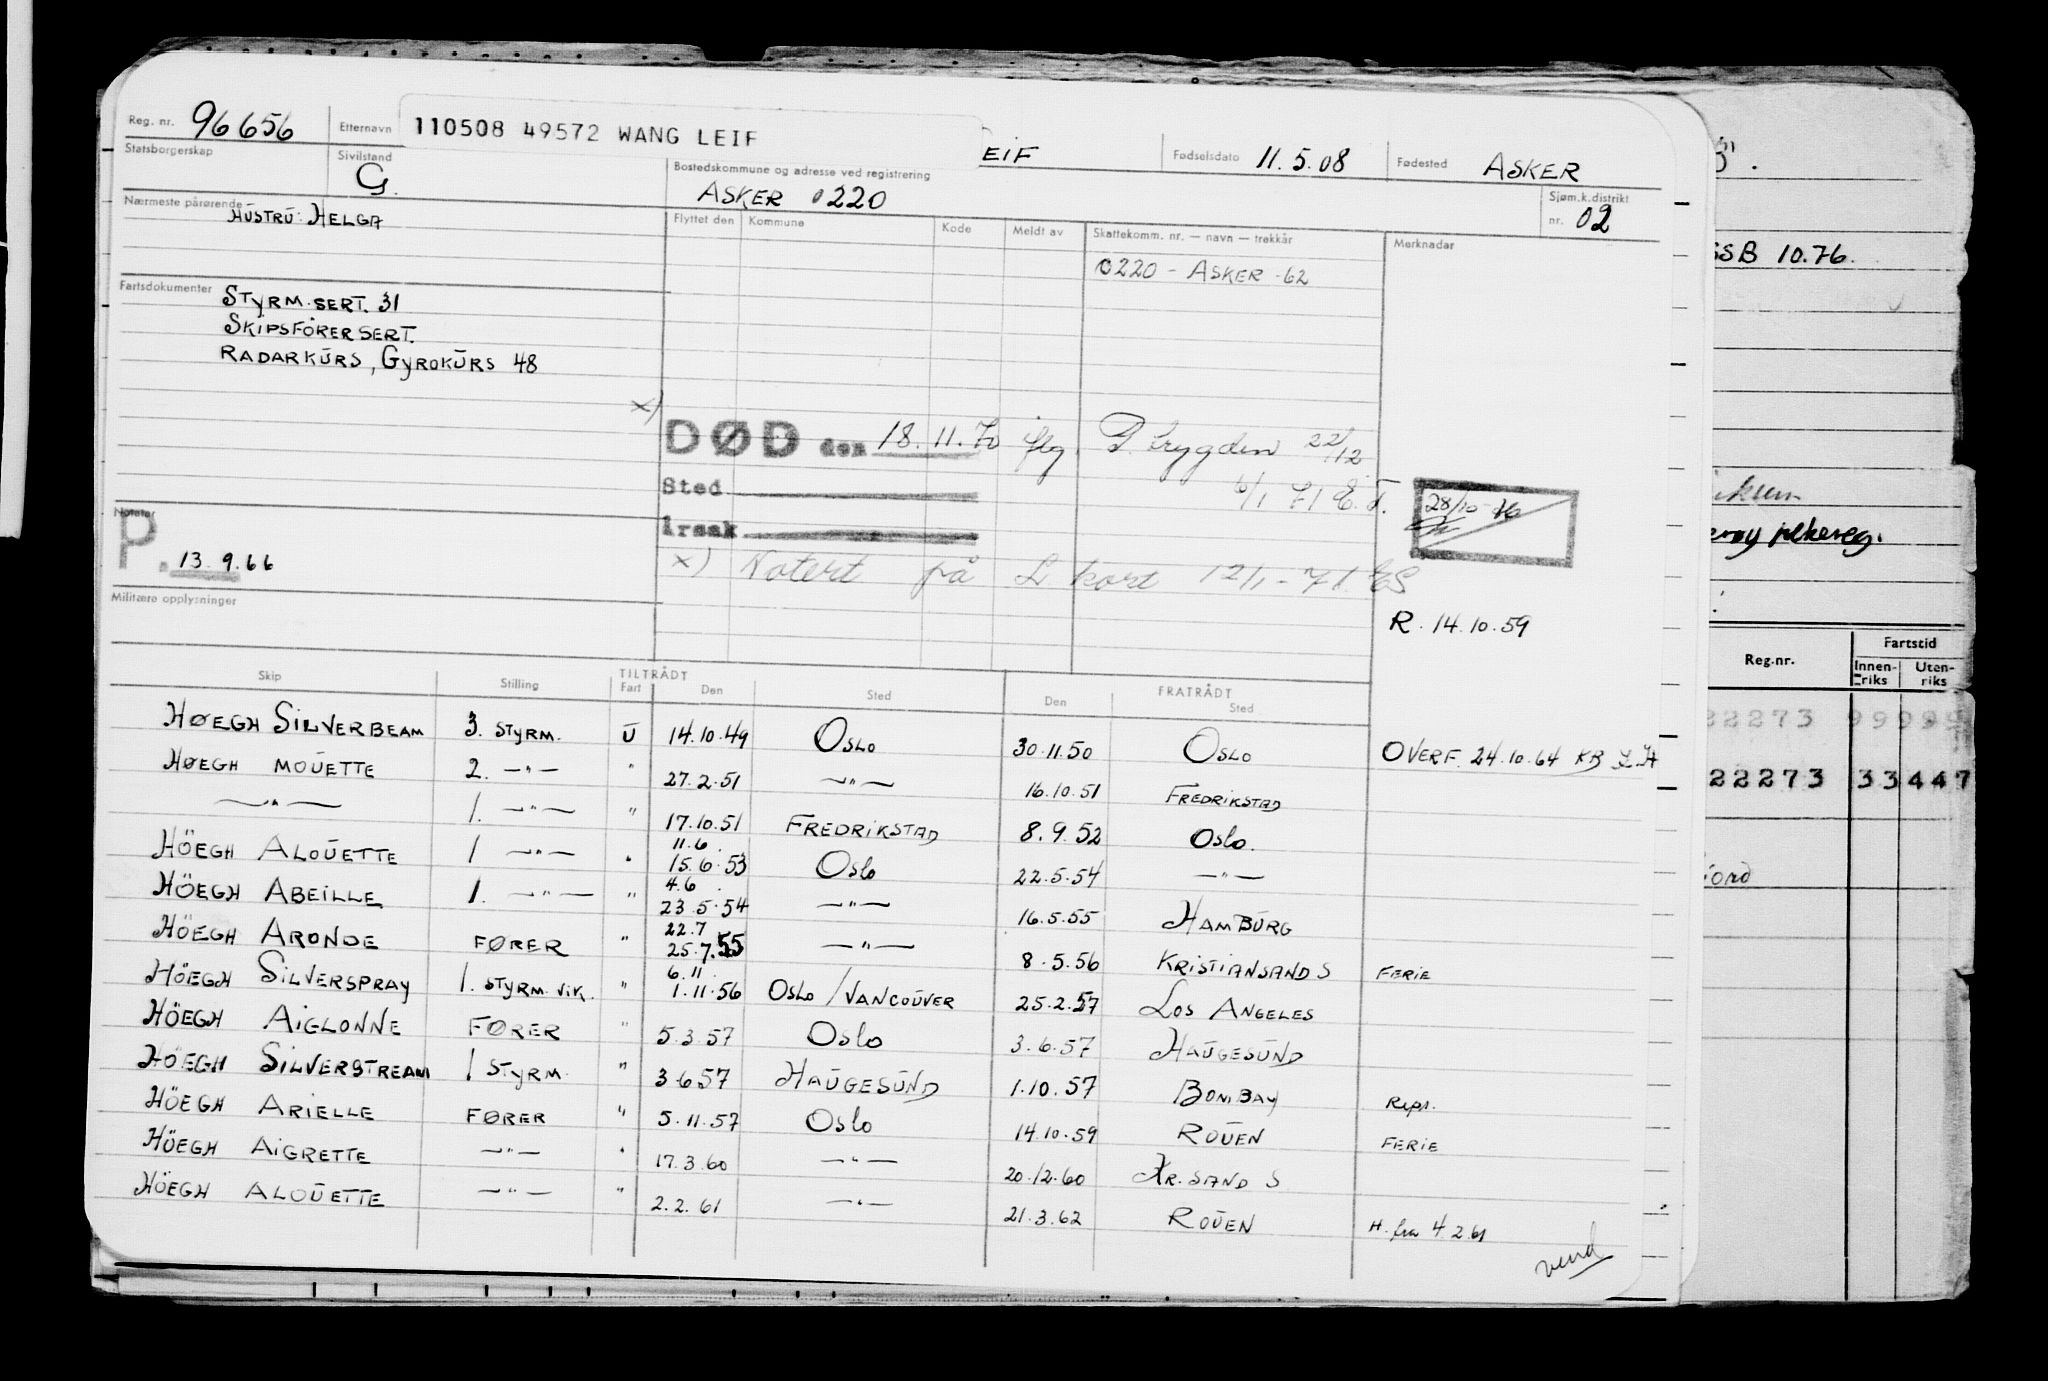 Reg. nr. 96656 Etternavn 110508 49572 WANG LEIF EIF Fødselsdato 11.5.08 Fødested ASKER
Statsborgerskap Sivilstand G. Bostedskommune og adresse ved registrering ASKER 0220 Sjøm.k.distrikt nr. 02
Nærmeste pårørende HUSTRU: HELGA
Flyttet den Kommune Kode Meldt av Skattekomm. nr. — navn — trekkår Merknader
0220 - ASKER -62
Fartsdokumenter STYRM.SERT. 31
SKIPSFÖRERSERT.
RADARKURS, GYROKURS 48
x)
DØD den 18.11.70 flg. P.trygden 22/12
Sted 6/1 71 E.T.
Årsak
28/10-76
x) Notert på L kort 12/1-71 ES
Notater
P. 13.9.66
Militære opplysninger
R. 14.10.59
Skip Stilling TILTRÅDT Fart Den Sted FRATRÅDT Den Sted
HØEGH SILVERBEAM 3. STYRM. U 14.10.49 OSLO 30.11.50 OSLO OVERF. 24.10.64 KB
HØEGH MOUETTE 2. —"— " 27.2.51 —"— 16.10.51 FREDRIKSTAD
—"— 1. —"— " 17.10.51 FREDRIKSTAD 8.9.52 OSLO.
HÖEGH ALOUETTE 1 —"— " 11.6. 15.6.53 OSLO 22.5.54 —"—
HÖEGH ABEILLE 1. —"— " 4.6. 23.5.54 —"— 16.5.55 HAMBURG
HÖEGH ARONDE FØRER " 22.7 25.7.55 —"— 8.5.56 KRISTIANSAND S FERIE
HÖEGH SILVERSPRAY 1. STYRM. VIK. " 6.11. 1.11.56 OSLO / VANCOUVER 25.2.57 LOS ANGELES
HÖEGH AIGLONNE FØRER " 5.3.57 OSLO 3.6.57 HAUGESUND
HÖEGH SILVERSTREAM 1 STYRM. " 3.6.57 HAUGESUND 1.10.57 BOMBAY Repr.
HÖEGH ARIELLE FØRER " 5.11.57 OSLO 14.10.59 ROUEN FERIE
HÖEGH AIGRETTE —"— " 17.3.60 —"— 20.12.60 KR.SAND S
HÖEGH ALOUETTE —"— " 2.2.61 —"— 21.3.62 ROUEN H. fra 4.2.61
vend
SSB 10.76.
Reg.nr. Fartstid
Innen-riks Uten-riks
22273
22273 33 447